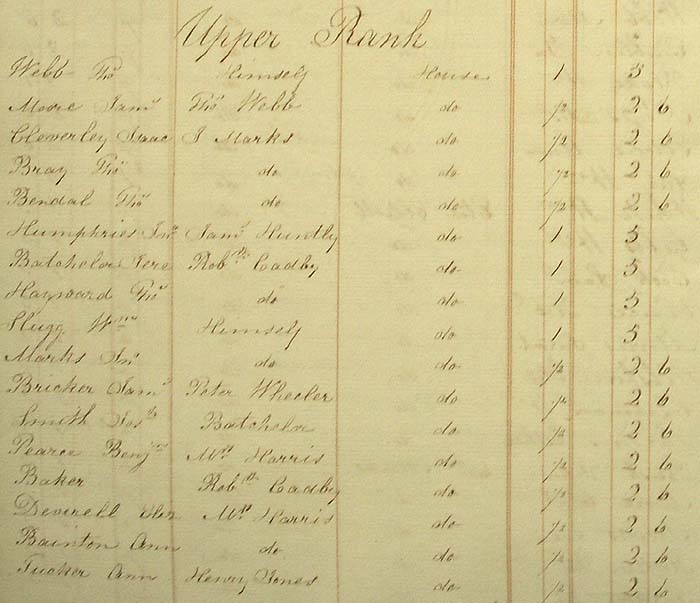 Upper Rank
Webb Thos Himself House 1 5
Moore Saml Thos Webb do 1/2 2 6
Cleverley Isaac J Marks do 1/2 2 6
Bray Thos do do 1/2 2 6
Bendal Thos do do 1/2 2 6
Humphries Jno Saml Huntly do 1 5
Batchelor Jere Robt Cadby do 1 5
Hayward Thos do do 1 5
Slugg Wm Himself do 1 5
Marks Jno do do 1/2 2 6
Bricker Saml Peter Wheeler do 1/2 2 6
Smith Batchelor do 1/2 2 6
Pearce Benjn Mrs Harris do 1/2 2 6
Baker Robt Cadby do 1/2 2 6
Deverell Mrs Harris do 1/2 2 6
Bainton Ann do do 1/2 2 6
Tucker Ann Henry Jones do 1/2 2 6